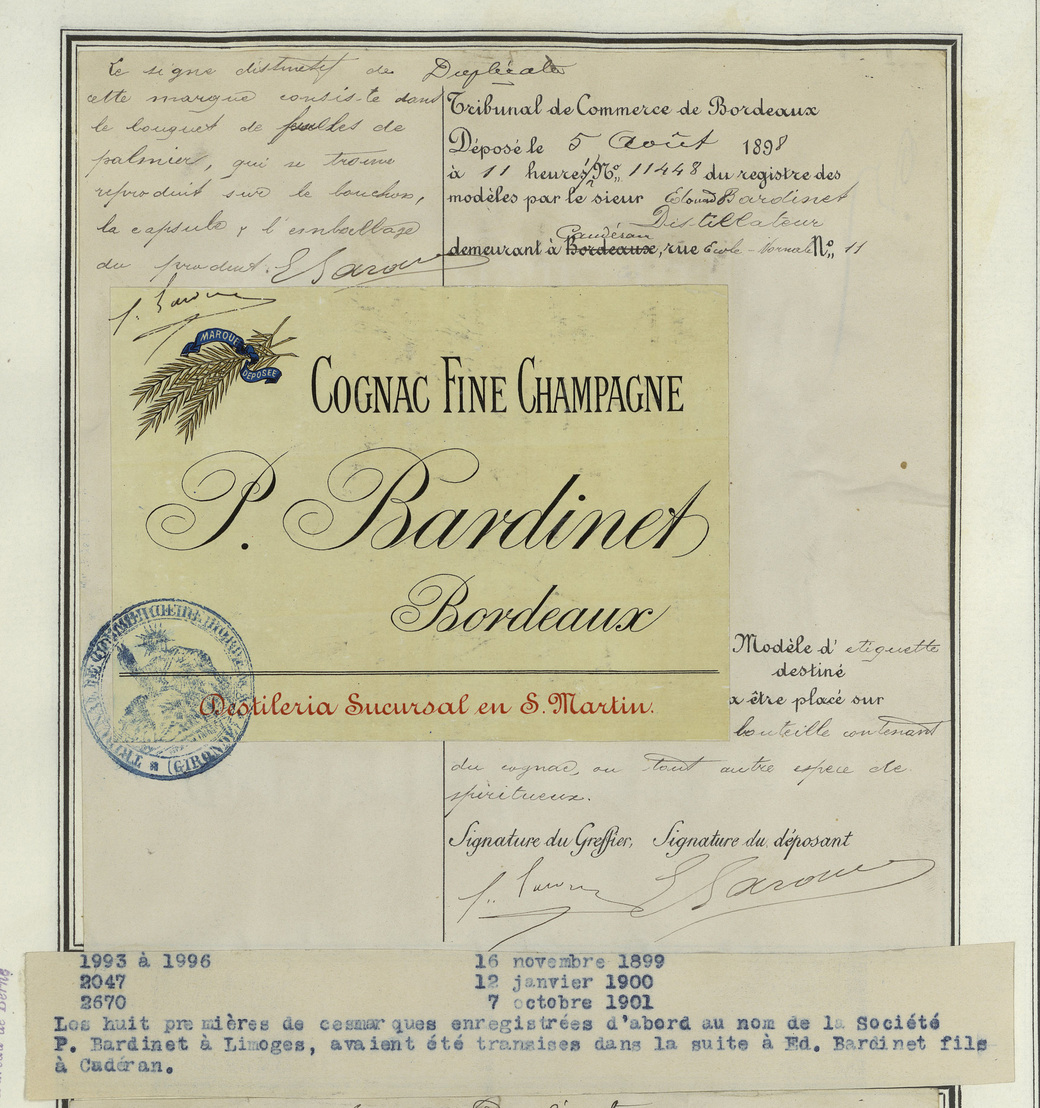 Le signe distinctif de
cette marque consiste dans
le bouquet de feuilles de
palmier, qui se trouve
reproduit sur le bouchon,
la capsule & l'emballage
du produit.
Duplicata
Tribunal de Commerce de Bordeaux
Déposé le 5 Août 1898
à 11 heures, No. 11448 du registre des
modèles par le sieur Edouard Bardinet
Distillateur
Caudéran
demeurant à Bordeaux, rue Ecole-Normale No. 11
MARQUE
DÉPOSÉE
COGNAC FINE CHAMPAGNE
P. Bardinet
Bordeaux
Destileria Sucursal en S. Martin.
TRIBUNAL DE COMMERCE DE BORDEAUX
(GIRONDE)
Modèle d'etiquette
destiné
à être placé sur
bouteille contenant
du cognac, ou tout autre espece de
spiritueux.
Signature du Greffier, Signature du déposant
1993 à 1996 16 novembre 1899
2047 12 janvier 1900
2670 7 octobre 1901
Les huit pre mières de cesmar ques enregistrées d'abord au nom de la Société
P. Bardinet à Limoges, avaient été transises dans la suite à Ed. Bardinet fils
à Cadéran.